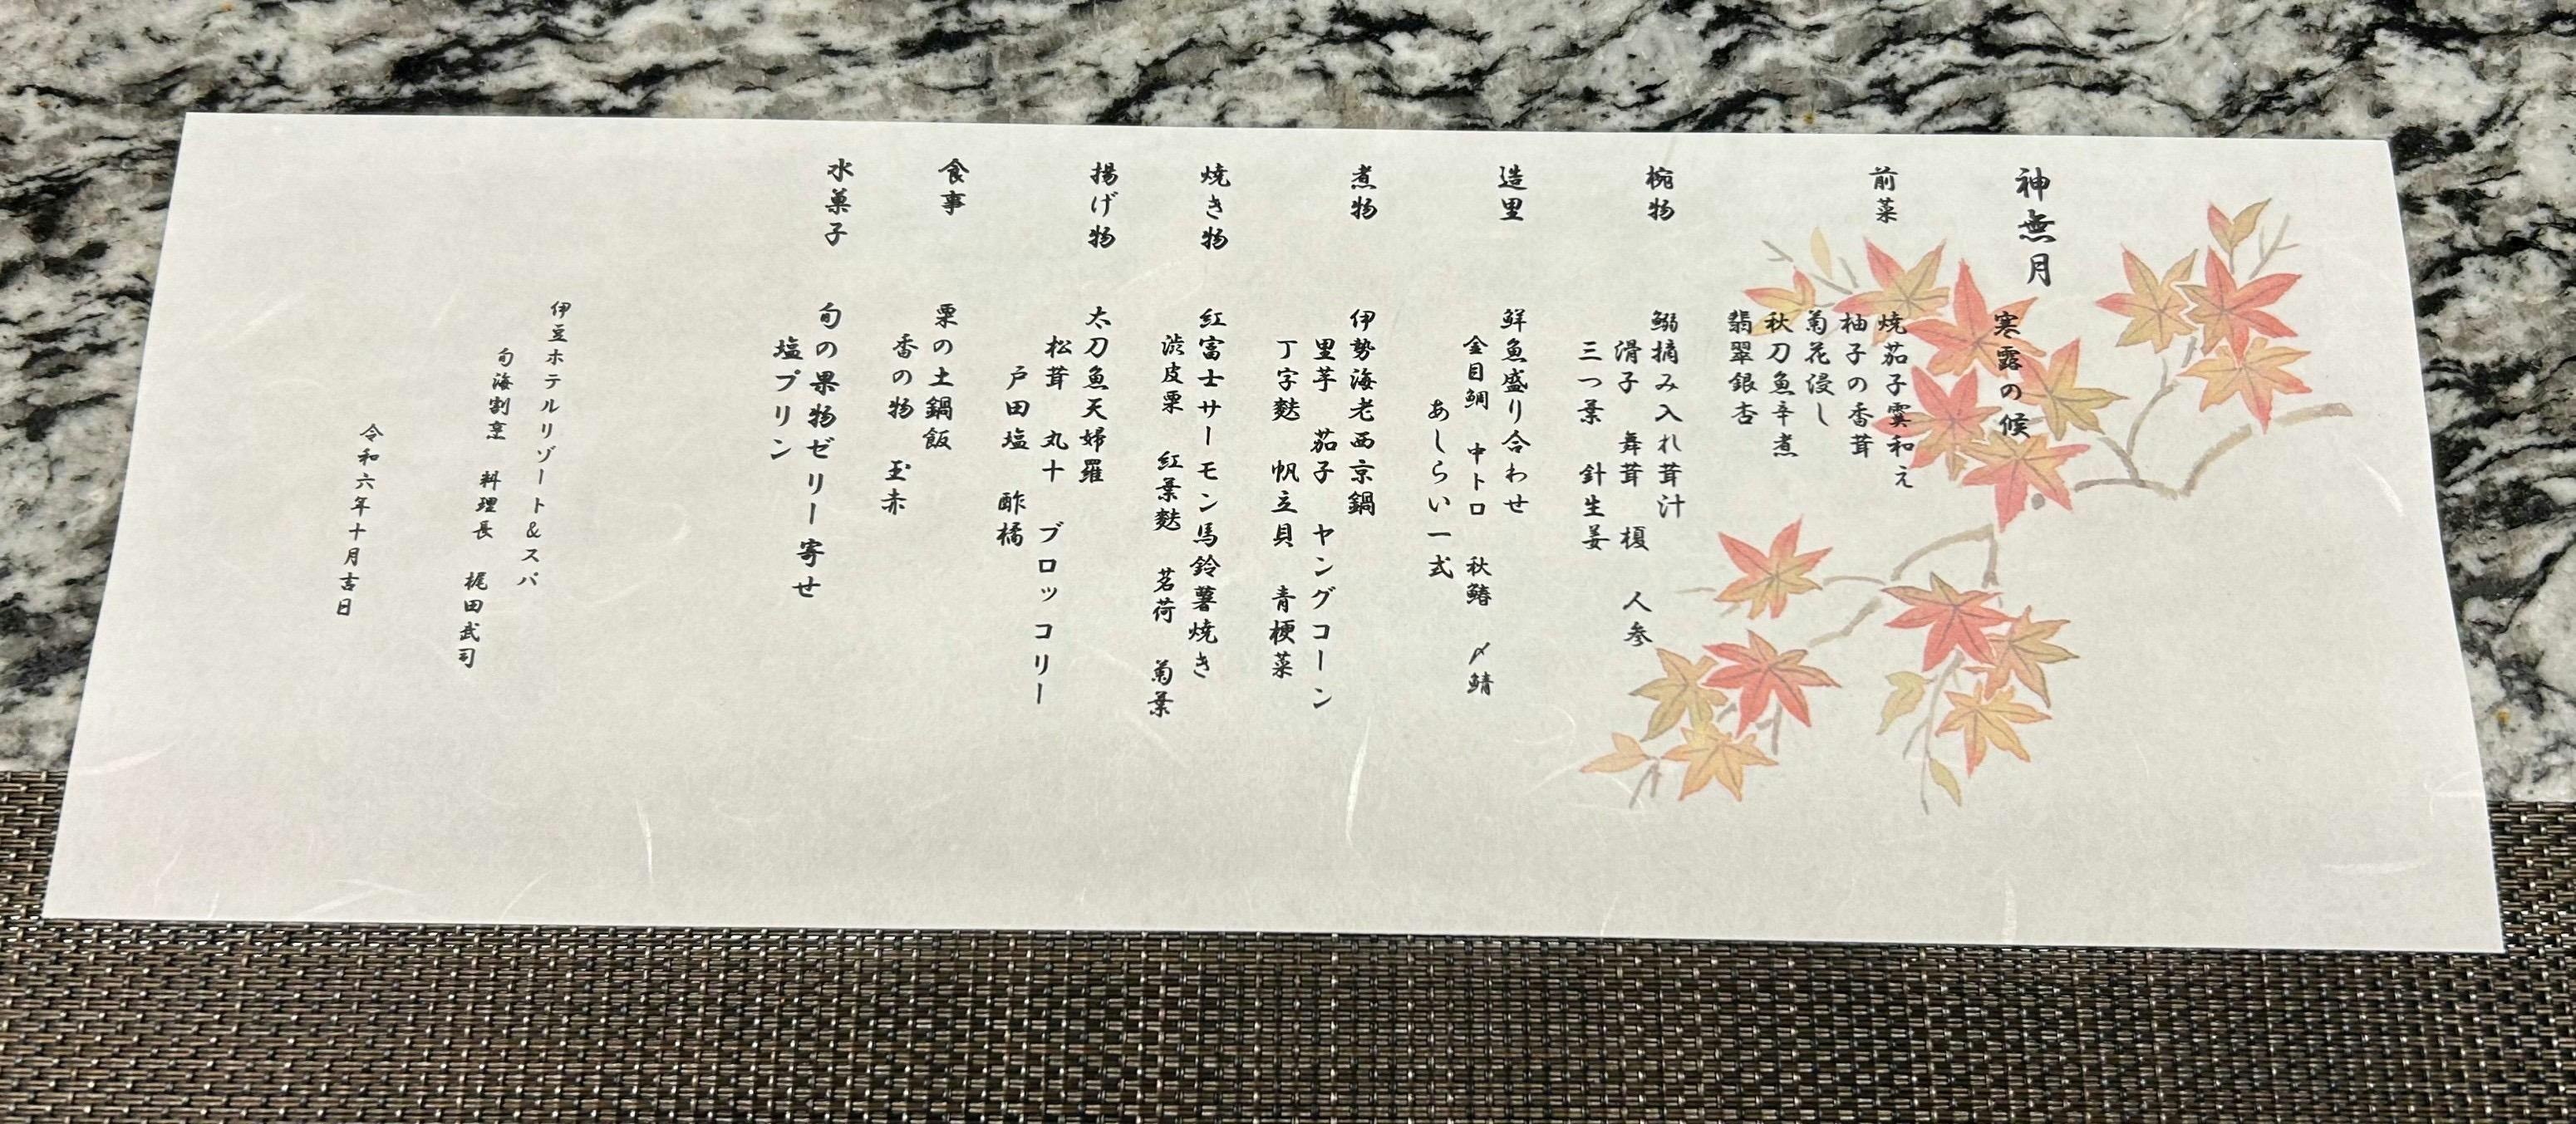 神無月
寒露の候
前菜
焼茄子霙和え
柚子の香茸
菊花浸し
秋刀魚辛煮
翡翠銀杏
椀物
鰯摘み入れ茸汁
滑子 舞茸 榎 人参
三つ葉 針生姜
造里
鮮魚盛り合わせ
金目鯛 中トロ 秋鰆 〆鯖
あしらい一式
煮物
伊勢海老西京鍋
里芋 茄子 ヤングコーン
丁字麩 帆立貝 青梗菜
焼き物
紅富士サーモン馬鈴薯焼き
渋皮栗 紅葉麩 茗荷 菊葉
揚げ物
太刀魚天婦羅
松茸 丸十 ブロッコリー
戸田塩 酢橘
食事
栗の土鍋飯
香の物 玉赤
水菓子
旬の果物ゼリー寄せ
塩プリン
伊豆ホテルリゾート&スパ
旬海割烹 料理長 梶田武司
令和六年十月吉日